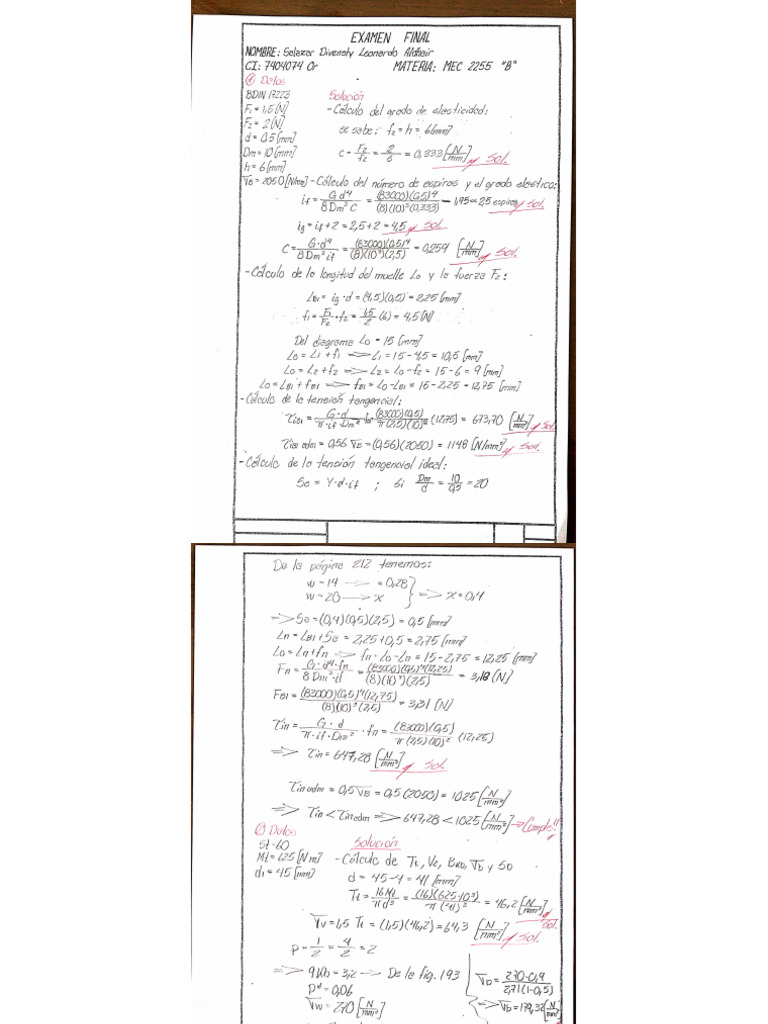 EXAMEN FINAL
NOMBRE: Salazar Divensty Leonardo Aldair
CI: 7404074 Or MATERIA: MEC 2255 "B"
① Datos
BDIN 17223 Solución
F₁ = 1,5 [N] - Cálculo del grado de elasticidad:
F₂ = 2 [N] se sabe: f₂ = h = 6 [mm]
d = 0,5 [mm]
Dm = 10 [mm] C = F₂/f₂ = 2/6 = 0,333 [N/mm] Sol.
h = 6 [mm]
σB = 2050 [N/mm] - Cálculo del número de espiras y el grado elastico:
if = G d⁴/8 Dm³ C = (83000)(0,5)⁴/(8)(10)³(0,333) = 1,95 ≈ 2,5 espiras Sol.
ig = if + 2 = 2,5 + 2 = 4,5 Sol.
C = G·d⁴/8 Dm³ if = (83000)(0,5)⁴/(8)(10³)(2,5) = 0,259 [N/mm] Sol.
- Cálculo de la longitud del muelle Lo y la fuerza F₂:
LB1 = ig · d = (4,5)(0,5) = 2,25 [mm]
f₁ = F₁/F₂ · f₂ = 1,5/2 (6) = 4,5 [N]
Del diagrama Lo = 15 [mm]
Lo = L₁ + f₁ => L₁ = 15 - 4,5 = 10,5 [mm]
Lo = L₂ + f₂ => L₂ = Lo - f₂ = 15 - 6 = 9 [mm]
Lo = LB1 + fB1 => fB1 = Lo - LB1 = 15 - 2,25 = 12,75 [mm]
- Cálculo de la tensión tangencial:
τiB1 = G·d/π·if·Dm² (83000)(0,5)/π(2,5)(10)² (12,75) = 673,70 [N/mm²] Sol.
τiB1 adm = 0,56 σB = (0,56)(2050) = 1148 [N/mm²] Sol.
- Cálculo de la tensión tangencial ideal:
Sa = Y·d·if ; Si Dm/d = 10/0,5 = 20
De la página 212 tenemos:
w - 14 → = 0,28
w - 20 → x } => x = 0,4
=> Sa = (0,4)(0,5)(2,5) = 0,5 [mm]
Ln = LB1 + Sa = 2,25 + 0,5 = 2,75 [mm]
Lo = Ln + fn => fn = Lo - Ln = 15 - 2,75 = 12,25 [mm]
Fn = G·d⁴·fn/8 Dm³·if = (83000)(0,5)⁴(12,25)/(8)(10³)(2,5) = 3,18 [N]
FB1 = (83000)(0,5)⁴(12,75)/(8)(10)³(2,5) = 3,31 [N]
τin = G·d/π·if·Dm² · fn = (83000)(0,5)/π(2,5)(10)² (12,25)
=> τin = 647,28 [N/mm²] Sol.
τin adm = 0,5 σB = 0,5 (2050) = 1025 [N/mm²]
=> τin < τin adm => 647,28 < 1025 [N/mm²] → Cumple!!
② Datos
St-60 Solución
Mt = 625 [Nm] - Cálculo de Tt, Vv, BKb, σb y So
d₁ = 45 [mm] d = 45 - 4 = 41 [mm]
Tt = 16 Mt/πd³ = (16)(625·10³)/π(41)³ = 46,2 [N/mm²] Sol.
σv = 1,5 Tt = (1,5)(46,2) = 64,3 [N/mm²] Sol.
P = 1/2 = 4/2 = 2
=> 9Kb = 3,2 → De la fig. 193
P* = 0,06
σw = 270 [N/mm²]
σD = 270·0,9/2,71(1-0,5)
=> σD = 179,32 [N/mm²]